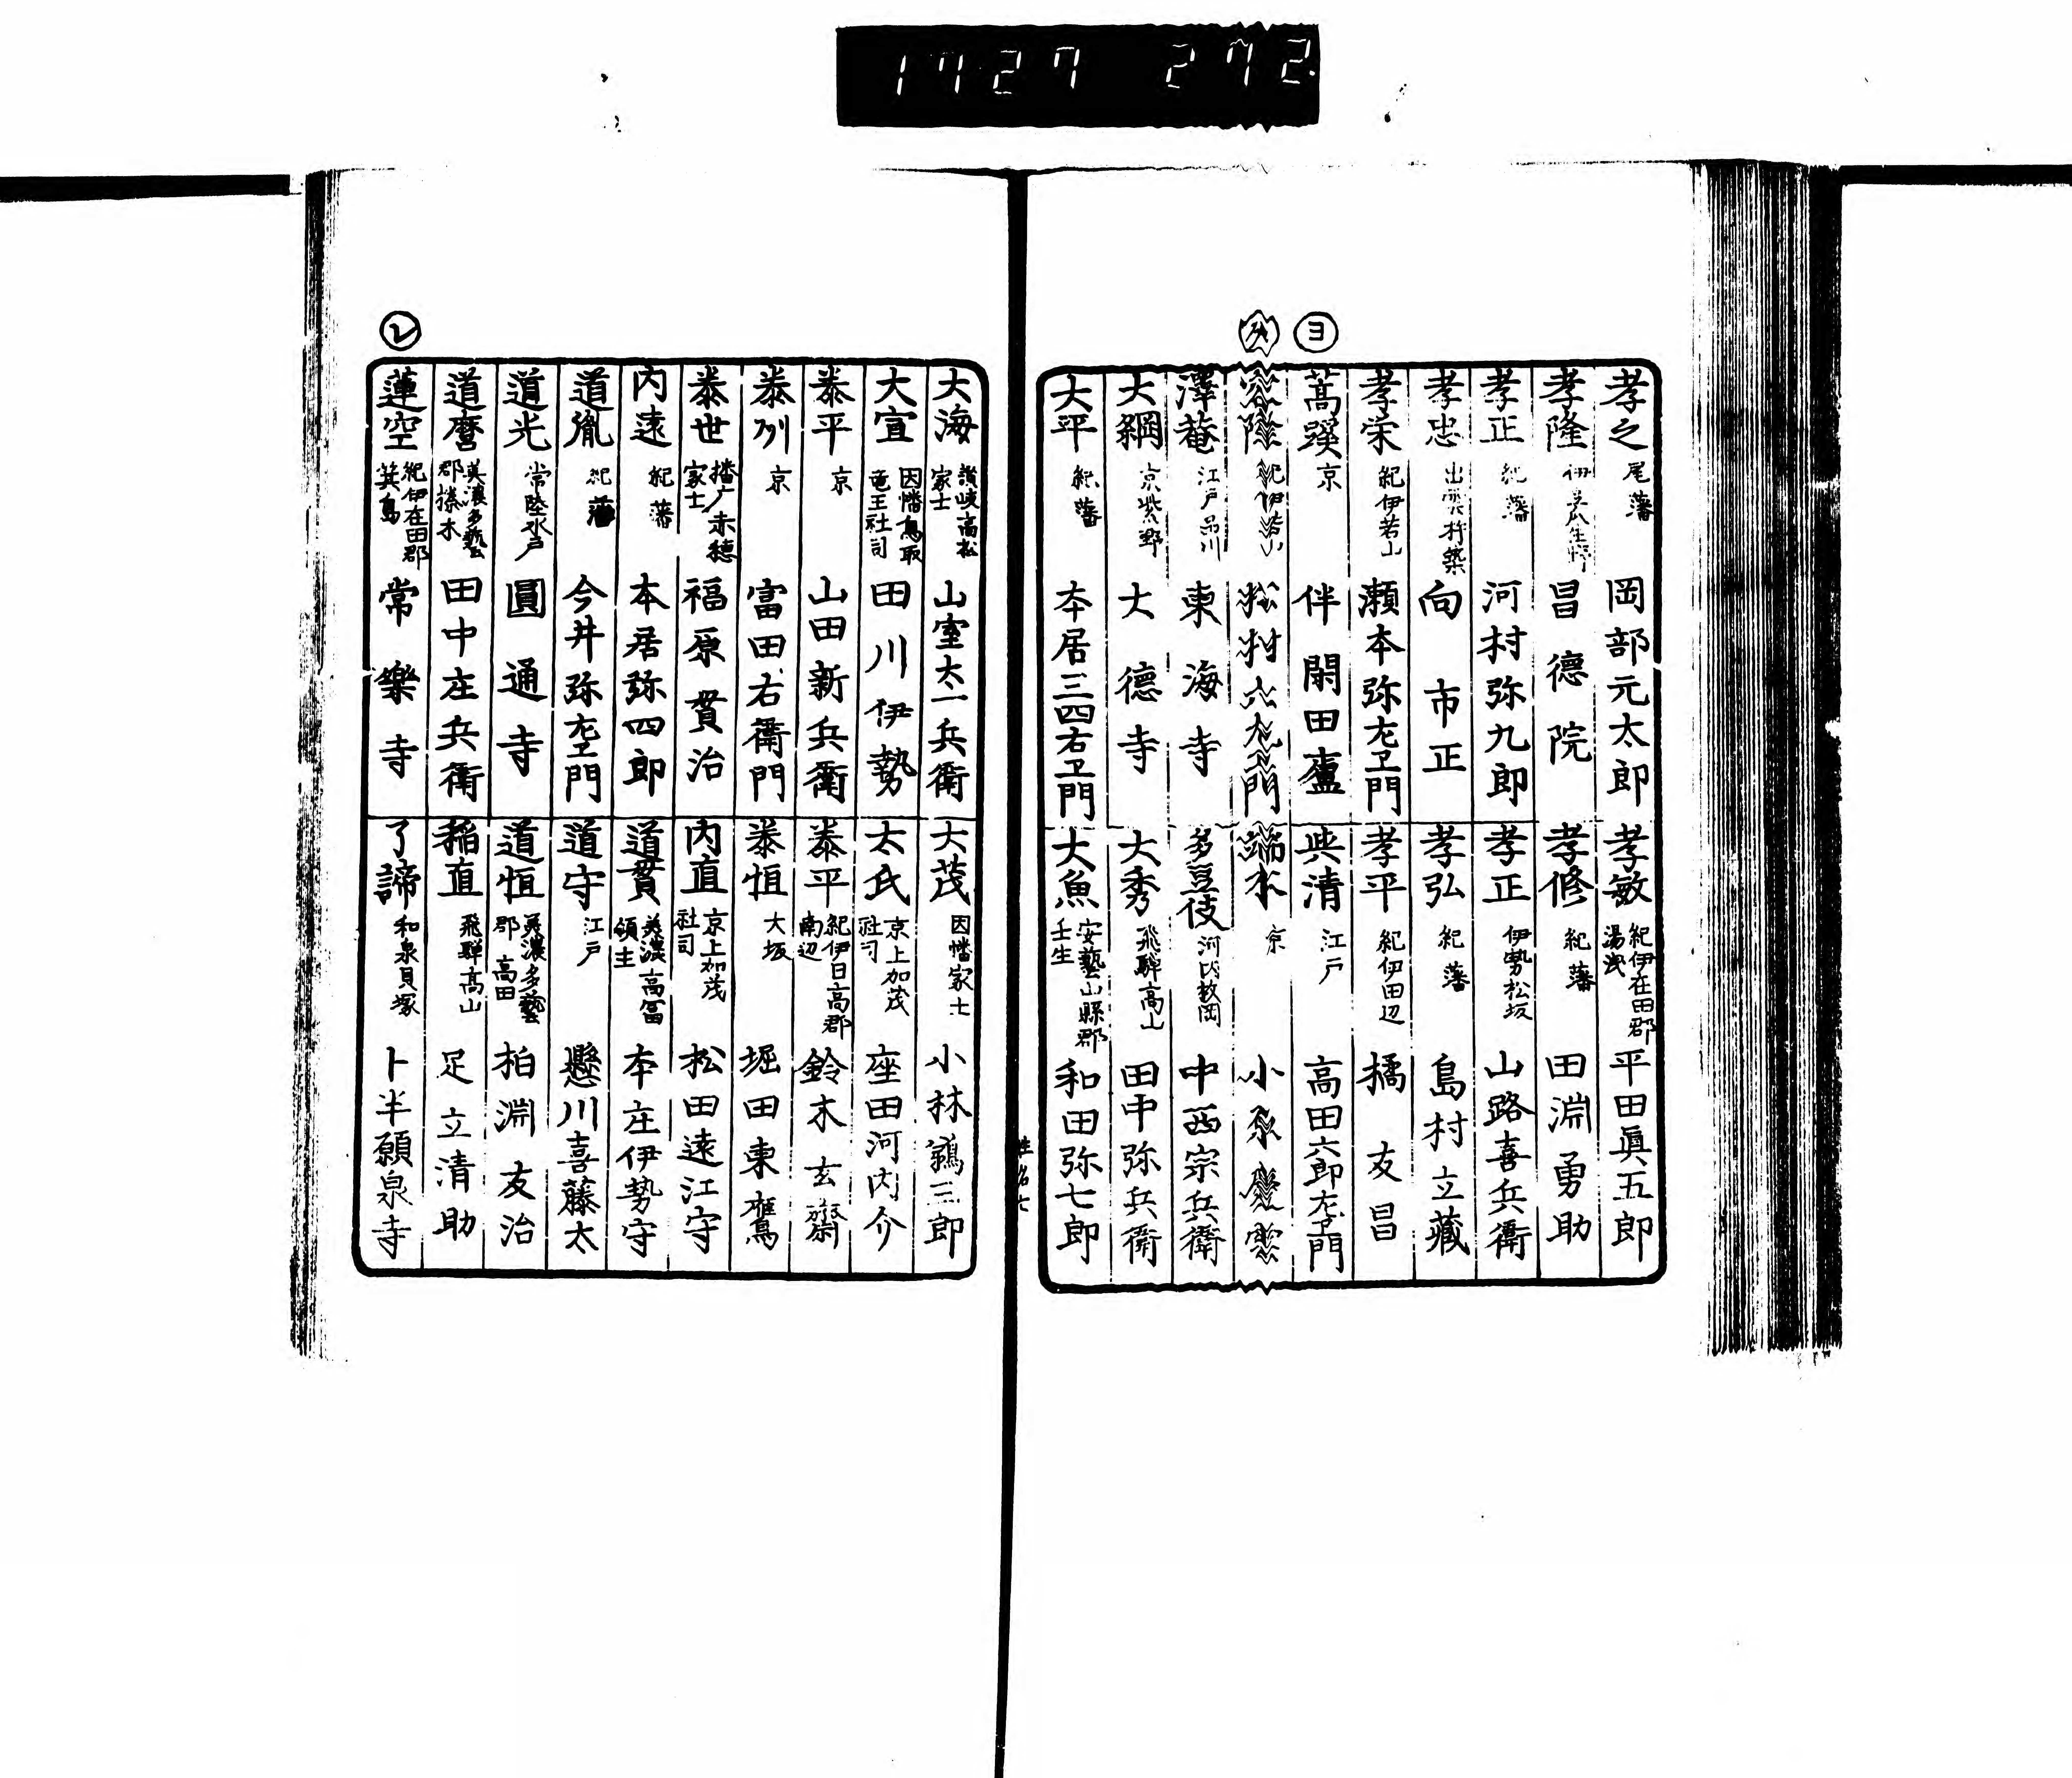 1727 272
ヨ
孝之 尾藩 岡部元太郎
孝隆 昌德院
孝正 紀藩 河村弥九郎
孝忠 出雲杵築 向市正
孝栄 紀伊若山 瀬本弥左ヱ門
蒿蹊 京 伴閑田廬
紀伊若山 松村六左ヱ門
澤菴 江戸品川 東海寺
大綱 京紫野 大德寺
大平 紀藩 本居三四右ヱ門
孝敏 紀伊在田郡湯浅 平田眞五郎
孝修 紀藩 田淵勇助
孝正 伊勢松坂 山路喜兵衛
孝弘 紀藩 島村立藏
孝平 紀伊田辺 橘友昌
與清 江戸 高田六郎左ヱ門
端木 京 小原慶雲
多豆伎 河内教岡 中西宗兵衛
大秀 飛騨高山 田中弥兵衛
大魚 安藝山縣郡壬生 和田弥七郎
姓名七
レ
大海 讃岐高松家士 山室太一兵衛
大宣 因幡鳥取竜王社司 田川伊勢
泰平 京 山田新兵衛
泰州 京 富田右衛門
泰世 播广赤穂家士 福原貫治
内遠 紀藩 本居弥四郎
道胤 紀藩 今井弥左ヱ門
道光 常陸水戸 圓通寺
道麿 美濃多藝郡榛木 田中庄兵衛
蓮空 紀伊在田郡箕島 常樂寺
大茂 因幡家士 小林鵜三郎
太氏 京上加茂社司 座田河内介
泰平 紀伊日高郡南辺 鈴木玄齋
泰恒 大坂 堀田東鴈
内直 京上加茂社司 松田遠江守
道貫 美濃高冨領主 本庄伊勢守
道守 江戸 懸川喜藤太
道恒 美濃多藝郡高田 柏淵友治
稲直 飛騨高山 足立清助
了諦 和泉貝塚 卜半願泉寺